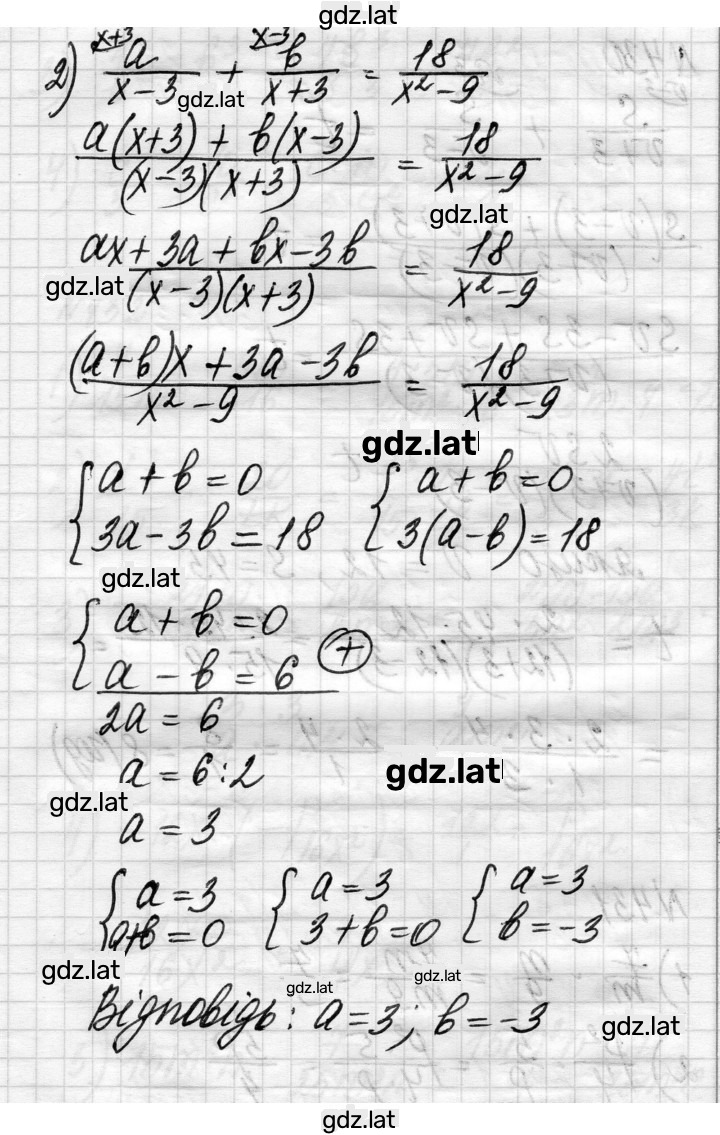 gdz.lat
x+3 x-3
2) a/(x-3) + b/(x+3) = 18/(x²-9)
gdz.lat
(a(x+3) + b(x-3))/((x-3)(x+3)) = 18/(x²-9)
gdz.lat
(ax+3a+bx-3b)/((x-3)(x+3)) = 18/(x²-9)
gdz.lat
((a+b)x+3a-3b)/(x²-9) = 18/(x²-9)
gdz.lat
{a+b=0 {a+b=0
3a-3b=18 3(a-b)=18
gdz.lat
{a+b=0
a-b=6 +
2a=6
a=6:2
gdz.lat
gdz.lat
a=3
{a=3 {a=3 {a=3
a+b=0 3+b=0 b=-3
gdz.lat
gdz.lat
gdz.lat
Відповідь: a=3; b=-3
gdz.lat
gdz.lat